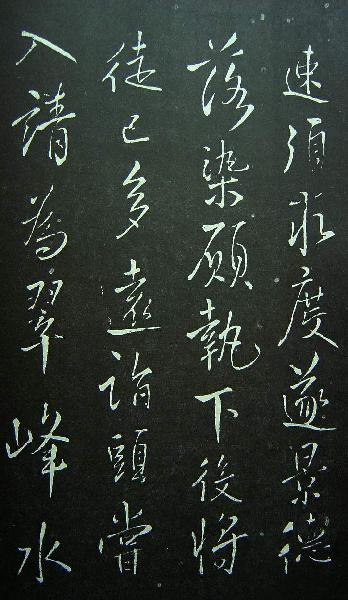 速須求度遂景德
落染願執下後將
徒已多遠詣頭當
入請為翠峰水